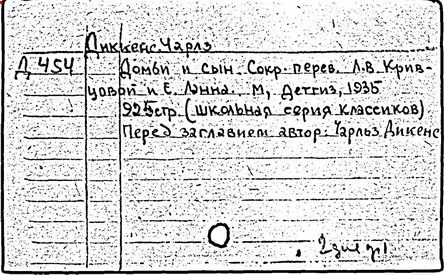 Диккенс Чарлз
Д 454 Домби и сын. Сокр. перев. Л.В. Крив-
цовой и Е. Ланна. М, Детгиз, 1935
925 стр. (школьная серия классиков)
Перед заглавием автор: Чарльз Дикенс